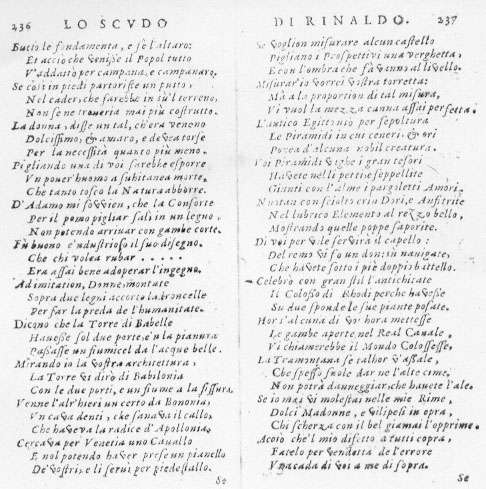 236 LO SCVDO
Buttò le fondamenta, e fè l'altaro:
Et acciò che venisse il Popol tutto
V'addattò per campana, e campanaro.
Se così in piedi partorisse un putto,
Nel cader, che sarebbe in sù'l terreno,
Non se ne troueria mai più costrutto.
La donna, disse un tal, ch'era veneno
Dolcissimo, & amaro, e deuea torse
Per la necessità quanto più meno.
Pigliando una di voi sarebbe esporre
Vn pouer'huomo a subitanea morte,
Che tanto tosco la Natura abborre.
D'Adamo mi souuien, che la Consorte
Per il pomo pigliar salì in un legno,
Non potendo arriuar con gambe corte.
Fù buono e'ndustrioso il suo disegno.
Che chi volea rubar . . . . .
Era assai bene adoperar l'ingegno.
Ad imitation, Donne, montate
Sopra due legni accorte la troncelle
Per far la preda de l'humanitate.
Dicono che la Torre di Babelle
Hauesse sol due porte, e'n la pianura
Passasse un fiumicel da l'acque belle.
Mirando io la vostra architettura,
La Torre vi dirò di Babilonia
Con le due porti, e un fiume a la fissura.
Venne l'altr'hieri un certo da Bononia,
Vn caua denti, che sanaua il callo,
Che haueua la radice d'Apollonia.
Cercaua per Venetia uno Cauallo
E nol potendo hauer prese un pianello
De'vostri, e li seruì per piedestallo.
Se
DI RINALDO. 237
Se voglion misurare alcun castello
Pigliano i Prospettiui una verghetta,
E con l'ombra che fà vanno al liuello.
Misurar io vorrei vostra torretta:
Mà a la proportion di tal misura,
Vi vuol la mezza canna assai perfetta.
L'antico Egittio per sepoltura
Le Piramidi in cui ceneri, & ori
Ponea d'alcuna nobil creatura.
Voi Piramidi vighe i gran tesori
Hauete nelì pettine seppellite
Gianti con l'alme i pargoletti Amori.
Nuotan con sciolto crin Dori, e Anfitrite
Nel lubrico Elemento al rezzo bello,
Mostrando quelle poppe saporite.
Di voi per vele seruirà il capello:
Del remo vi fo un don: sù nauigate,
Che hauete sotto i piè doppi battello.
Celebrò con gran stil l'antichitate
Il Colosso di Rhodi perche hauesse
Su due sponde le sue piante posate.
Hor s'alcuna di voi hora mettesse
Le gambe aperte nel Real Canale,
Vi chiamerebbe il Mondo Colossesse,
La Tramontana se talhor v'assale,
Che spesso suole dar ne l'alte cime,
Non potrà danneggiar, che hauete l'ale.
Se io mai vi molestai nelle mie Rime,
Dolci Madonne, e vilipesi in opra,
Chi scherza con il bel giamai l'opprime.
Acciò che'l mio difetto a tutti copra,
Fatelo per vendetta de l'errore
Vna cada di voi a me di sopra.
Se